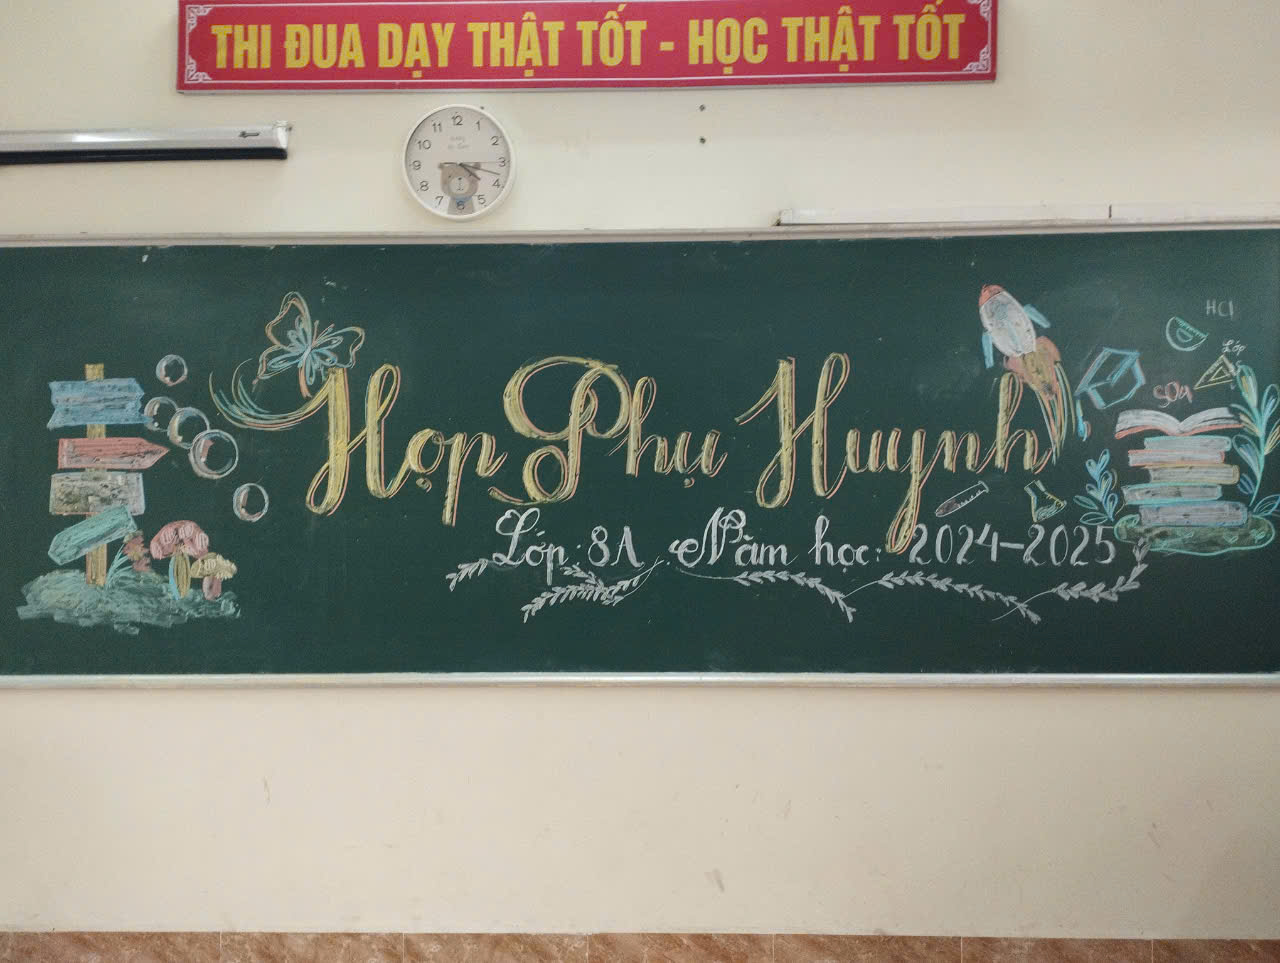 THI ĐUA DẠY THẬT TỐT - HỌC THẬT TỐT
12
11 1
10 2
9 3
8 4
7 5
6
HCl
Lớp
SOA
Họp Phụ Huynh
Lớp: 8A. Năm học: 2024-2025